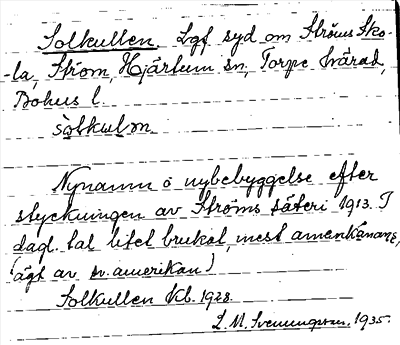 Solkullen. Lgf syd om Ströms Sko-
-la, Ström, Hjärtum sn, Torpe härad,
Bohus l.
sòlkulm
Nynamn å nybebyggelse efter
styckningen av Ströms säteri 1913. I
dagl. tal litet brukat, mest amerikanans,
(ägt av sv. amerikan)
Solkullen Kb. 1928.
L. M. Svenungsson. 1935.